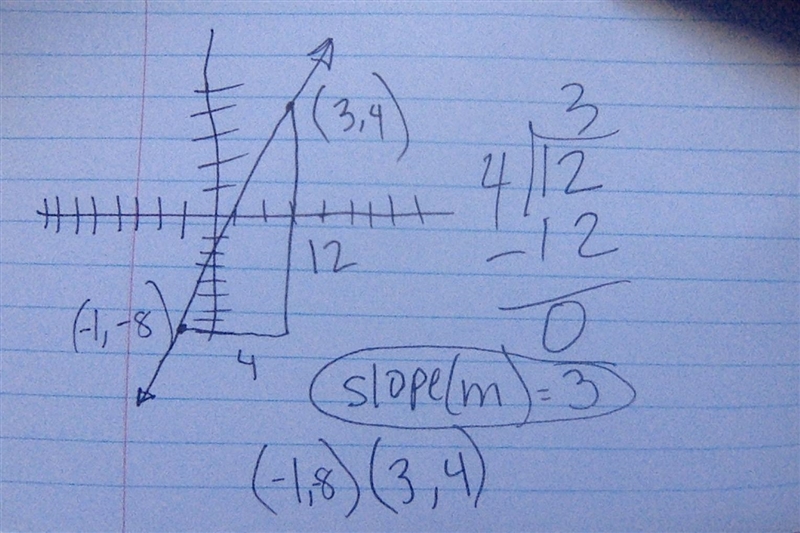 (3,4)
12
(-1,-8)
4
3
4 12
-12
0
slope(m) = 3
(-1,8) (3,4)